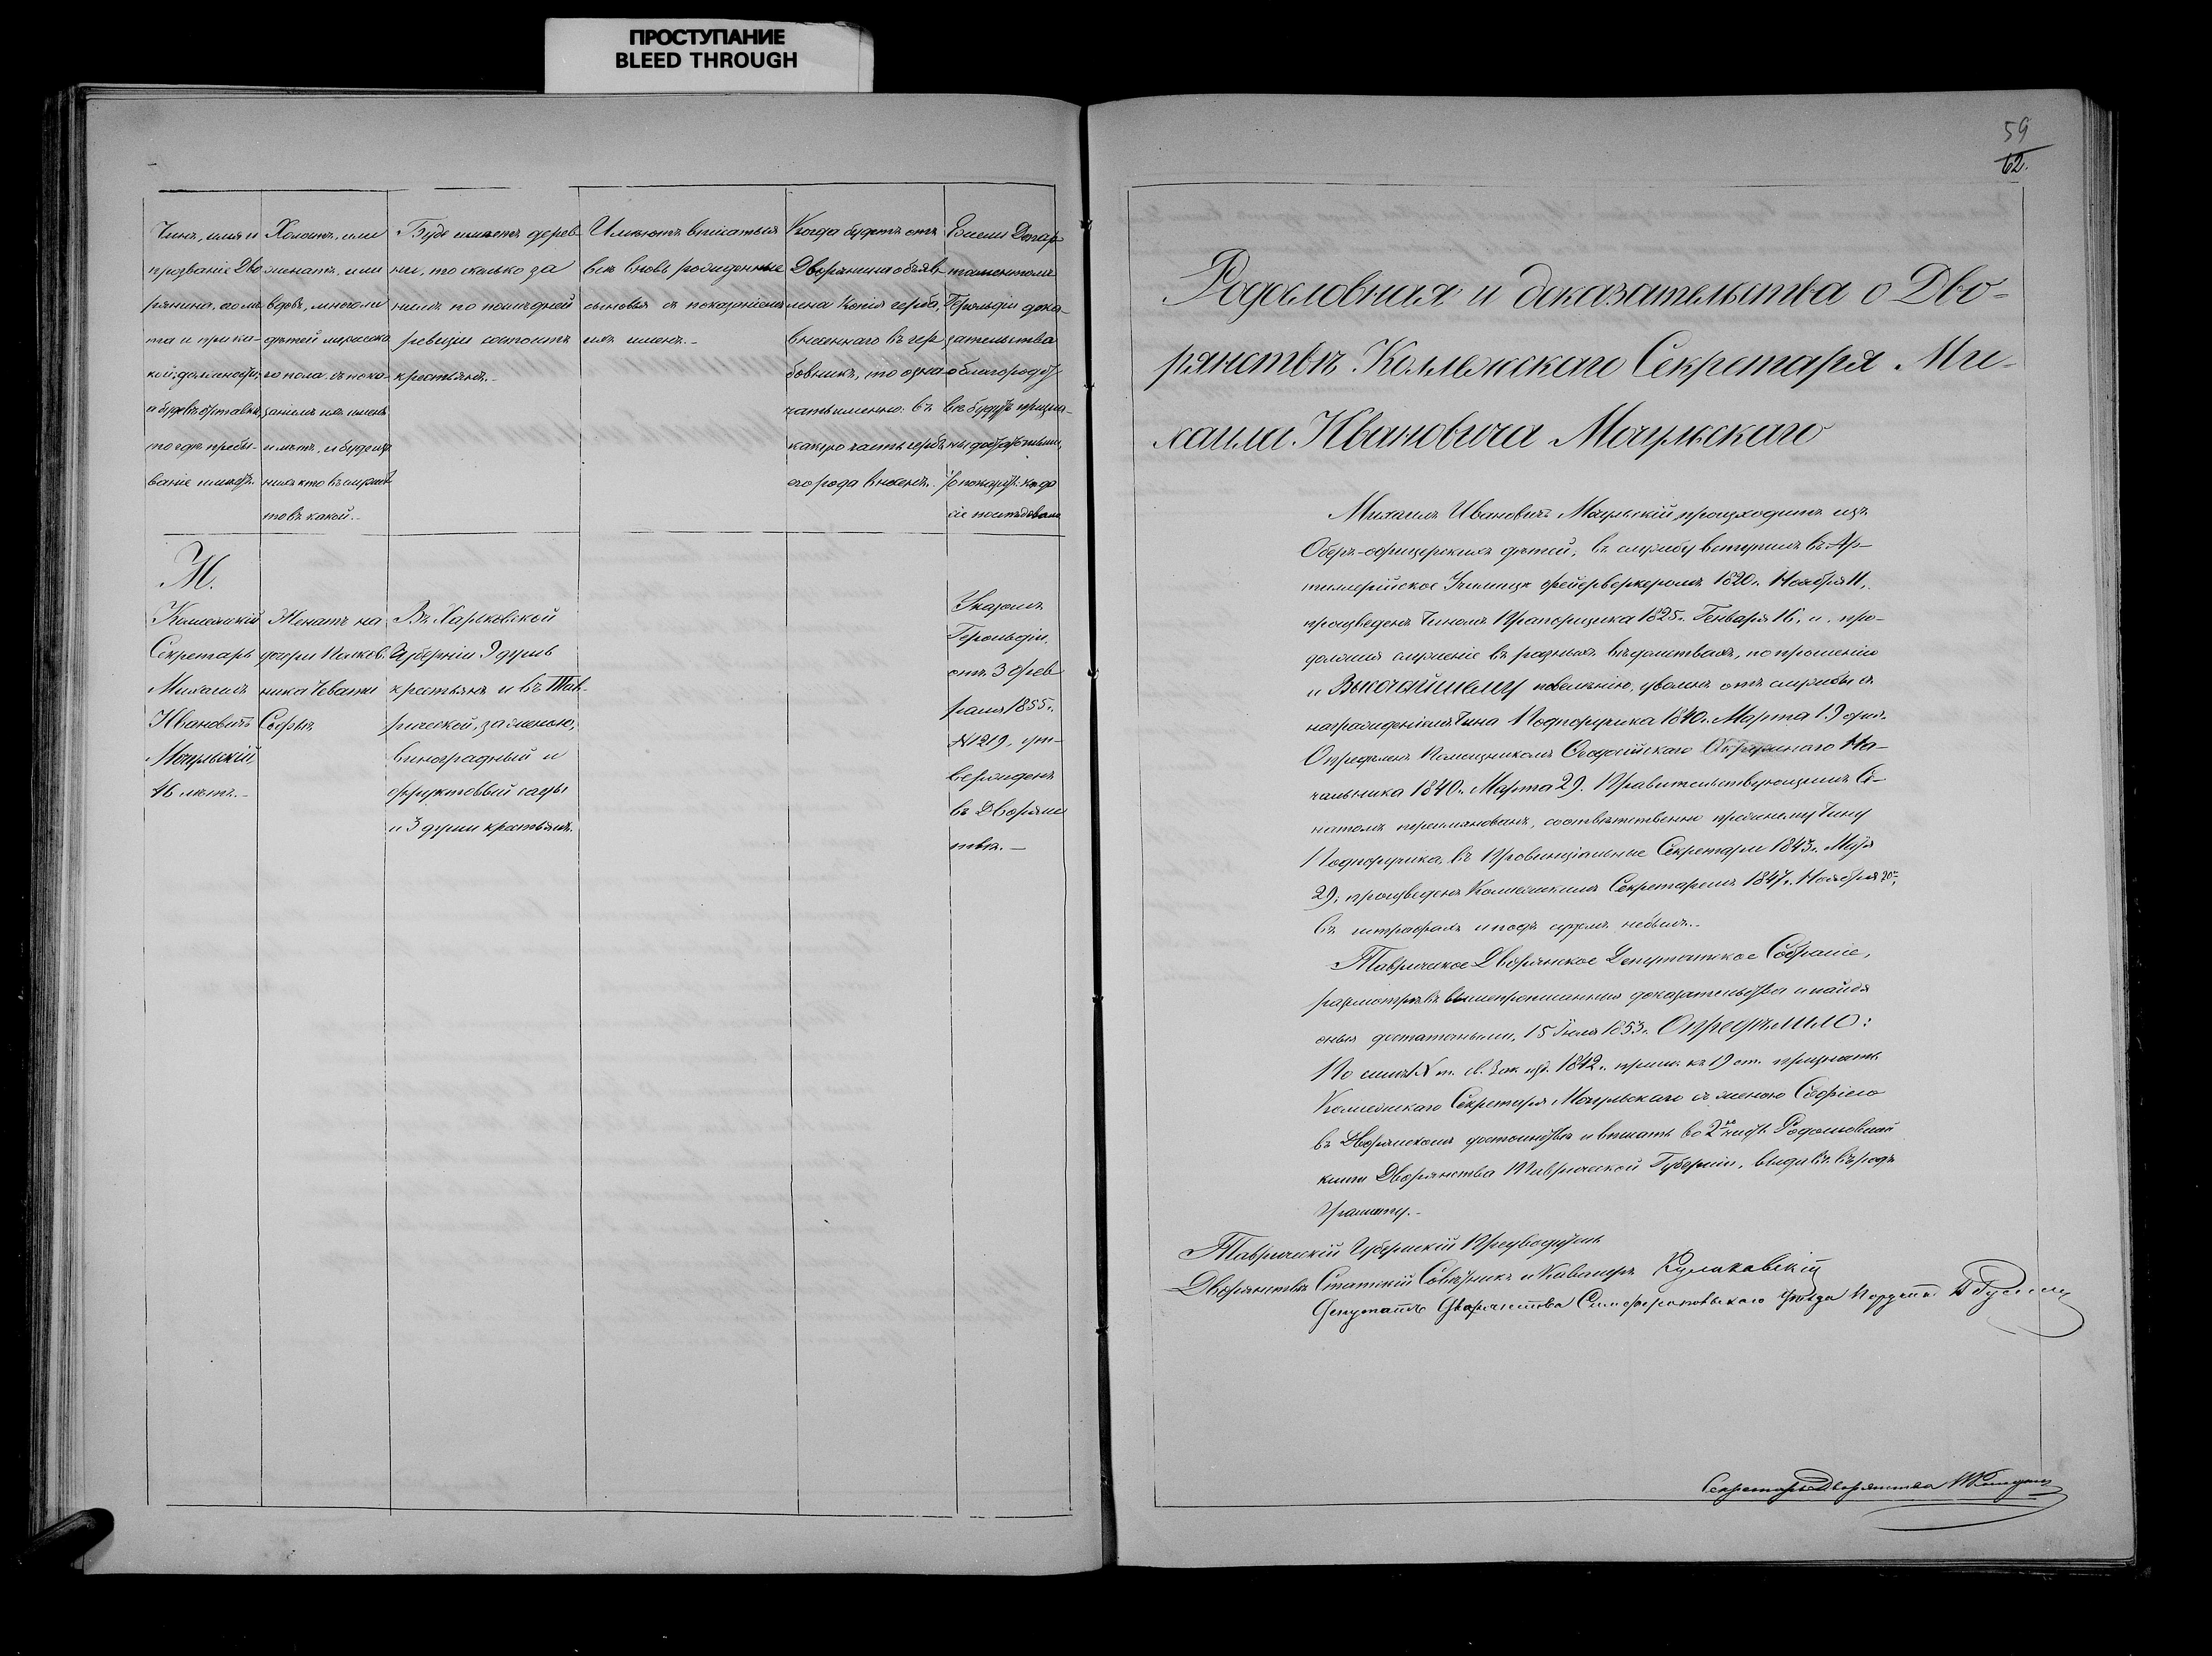 ПРОСТУПАНИЕ
BLEED THROUGH
Чинъ, имя и
прозваніе Дво
рянина, сколь
ваніе имѣетъ.
Холостъ, или
женатъ, или
вдовъ, много ли
дѣтей мужеска
го пола, съ пока-
заніемъ ихъ именъ
и лѣтъ, и буде изъ
нихъ кто въ службѣ
то въ какой.-
Буде имѣетъ дерев
ни, то сколько за
нимъ по послѣдней
ревизіи состоитъ
крестьянъ.-
Имѣютъ вписаться
всѣ вновь рожденные
сыновья съ показаніемъ
ихъ именъ.-
Когда будетъ отъ
Дворянина объяв-
лена Копія герба,
внесеннаго въ гер
бовникъ, то озна-
чать именно: въ
какую часть гербъ
его рода внесенъ.
Если Депар-
таментомъ
Герольдіи дока-
зательства
о благородст
вѣ будутъ призна-
ны достаточными,
то показать: когда
сіе послѣдовало
М.
Коллежскій
Секретарь
Михаилъ
Ивановичъ
Могульскій
46 лѣтъ.-
Женатъ на
дочери Полков-
ника
Софьѣ
Въ Харьковской
Губерніи 9 душъ
крестьянъ и въ Тав-
рической, за женою,
виноградный и
фруктовый сады
и 3 души крестьянъ.
Указомъ
Герольдіи
отъ 3 Фев
раля 1855г.
№1219, ут-
вержденъ
въ Дворянс
твѣ.-
59
62.
Родословная и доказательства о Дво-
рянствѣ Коллежскаго Секретаря Ми-
хаила Ивановича Могульскаго
Михаилъ Ивановичъ Могульскій происходитъ изъ
Оберъ-офицерскихъ дѣтей, въ службу вступилъ въ Ар-
тиллерійское Училище фейерверкеромъ 1820г. Ноября 11,
произведенъ Чиномъ Прапорщика 1825г. Генваря 16, и про-
должая служеніе въ разныхъ вѣдомствахъ, по прошенію
и Высочайшему повелѣнію, уволенъ отъ службы съ
награжденіемъ Чина Подпоручика 1840г. Марта 19 дня.
Опредѣленъ Помощникомъ Окружнаго На-
чальника 1840г. Марта 29. Правительствующимъ Се-
натомъ переименованъ, соотвѣтственно прежнему Чину
Подпоручика, въ Провинціальные Секретари 1843г. Мая
29, произведенъ Коллежскимъ Секретаремъ 1847г. Ноября 20го,
въ штрафахъ и подъ судомъ небылъ.-
Таврическое Дворянское Депутатское Собраніе,
разсмотрѣвъ вышепрописанныя доказательства и найдя
оныя достаточными, 15 Іюля 1853г. Опредѣлило:
По силѣ IX т. Св. Зак. изд. 1842г. прим. къ 19 ст. признать
Коллежскаго Секретаря Могульскаго съ женою Софіею
въ Дворянскомъ достоинствѣ и внесть во 2ю часть Родословной
книги Дворянства Таврической Губерніи, выдавъ въ родъ
Грамоту.-
Таврическій Губернскій Предводитель
Дворянства Статскій Совѣтникъ и Кавалеръ
Депутатъ Дворянства Симферопольскаго Уѣзда Поручикъ
Секретарь Дворянства